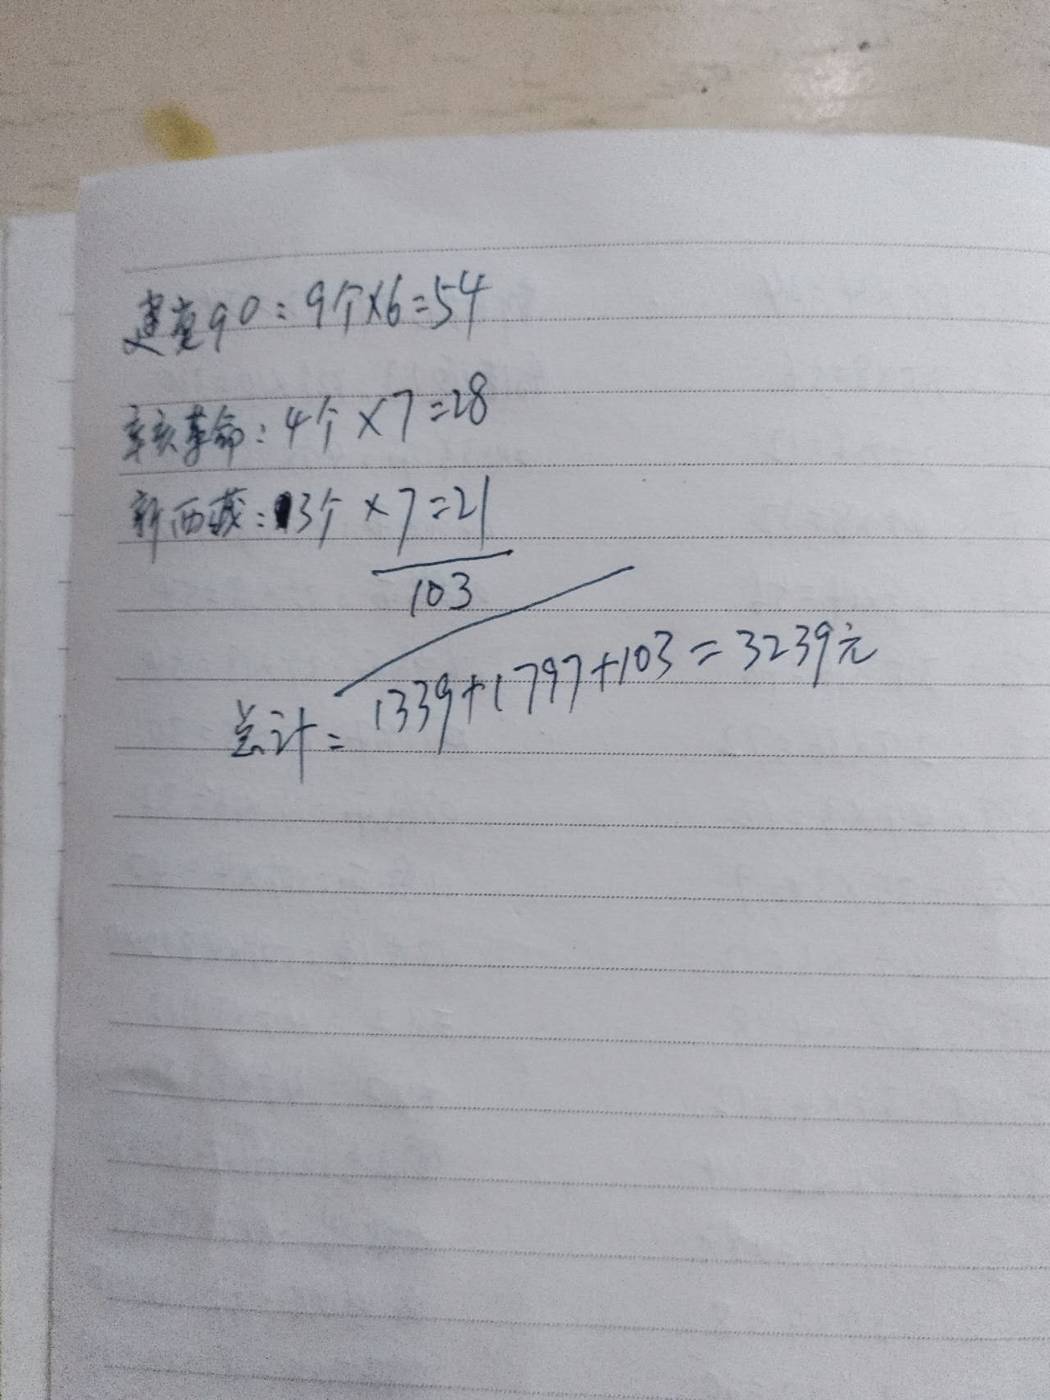 建党90:9个×6=54
辛亥革命:4个×7=28
新西藏:3个×7=21
103
总计=1339+1797+103=3239元